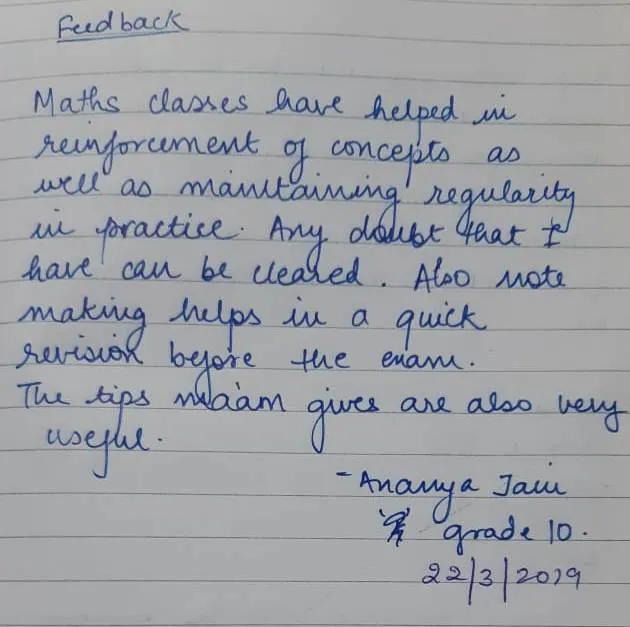 Feedback
Maths classes have helped in
reinforcement of concepts as
well as maintaining regularity
in practice. Any doubt that I
have can be cleared. Also note
making helps in a quick
revision before the exam.
The tips ma'am gives are also very
useful.
- Ananya Jain
grade 10.
22/3/2019